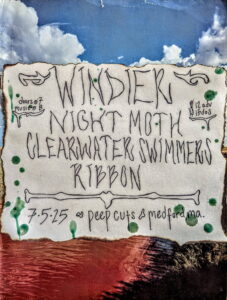 WINDIER
doors 7
music 8
$12 adv
NIGHT MOTH
CLEARWATER SWIMMERS
RIBBON
7.5.25 peep cuts medford, ma.